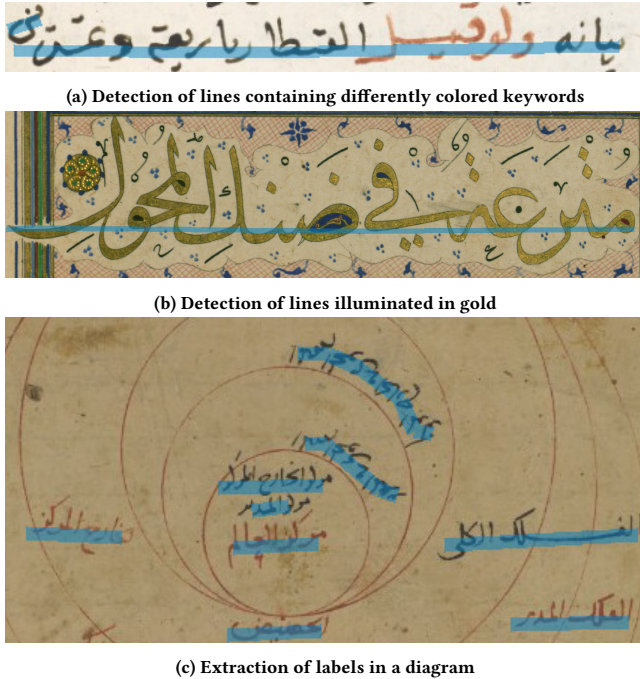 بيانه ولو قيل القنطار باربعة وعشرين
(a) Detection of lines containing differently colored keywords
مترعة في ضنك المحول
(b) Detection of lines illuminated in gold
مركز المدير
مركز العالم
خارج المركز
الفلك الكلي
الفلك المدير
الحضيض
(c) Extraction of labels in a diagram